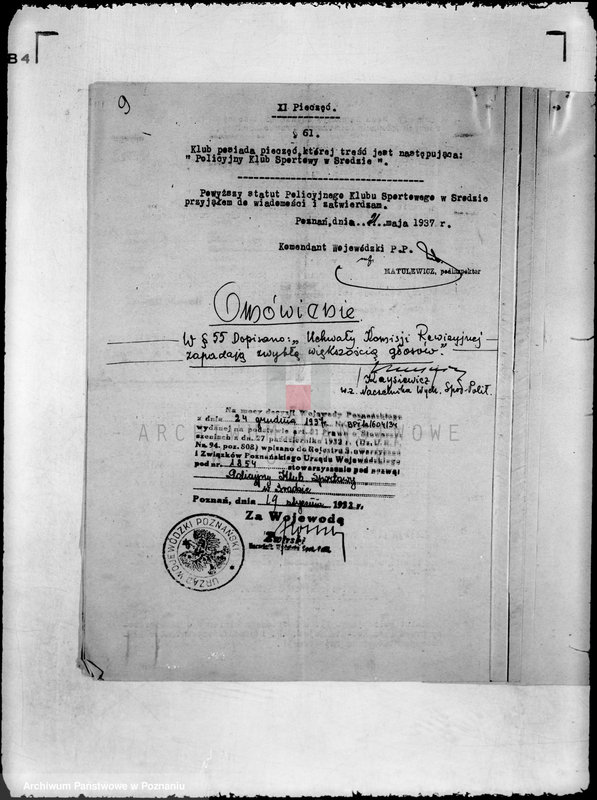 84
9
XI Pieczęć.
§ 61.
Klub posiada pieczęć, której treść jest następująca:
" Policyjny Klub Sportowy w Srodzie ".
Powyższy statut Policyjnego Klubu Sportowego w Srodzie
przyjąłem do wiadomości i zatwierdzam.
Poznań, dnia..21.maja 1937 r.
Komendant Wojewódzki P.P.
MATULEWICZ, podinspektor
Omówienie.
W § 55 Dopisano: „Uchwały Komisji Rewizyjnej
zapadają zwykłą większością głosów."
Krysiewicz
w.z. Naczelnika Wydz. Społ. Polit.
Na mocy decyzji Wojewody Poznańskiego
z dnia 24 grudnia 1937r. Nr.
wydanej na podstawie art. 21 Prawa o Stowarzy-
szeniach z dn. 27 października 1932 r. (Dz. U. R. P.
Na. 94. poz. 808) wpisano do Rejestru Stowarzyszeń
i Związków Poznańskiego Urzędu Wojewódzkiego
pod nr. 1854 stowarzyszenie pod nazwą:
Policyjny Klub Sportowy
w Srodzie
Poznań, dnia 19 stycznia 1938 r.
Za Wojewodę
URZĄD WOJEWÓDZKI POZNAŃSKI
Archiwum Państwowe w Poznaniu